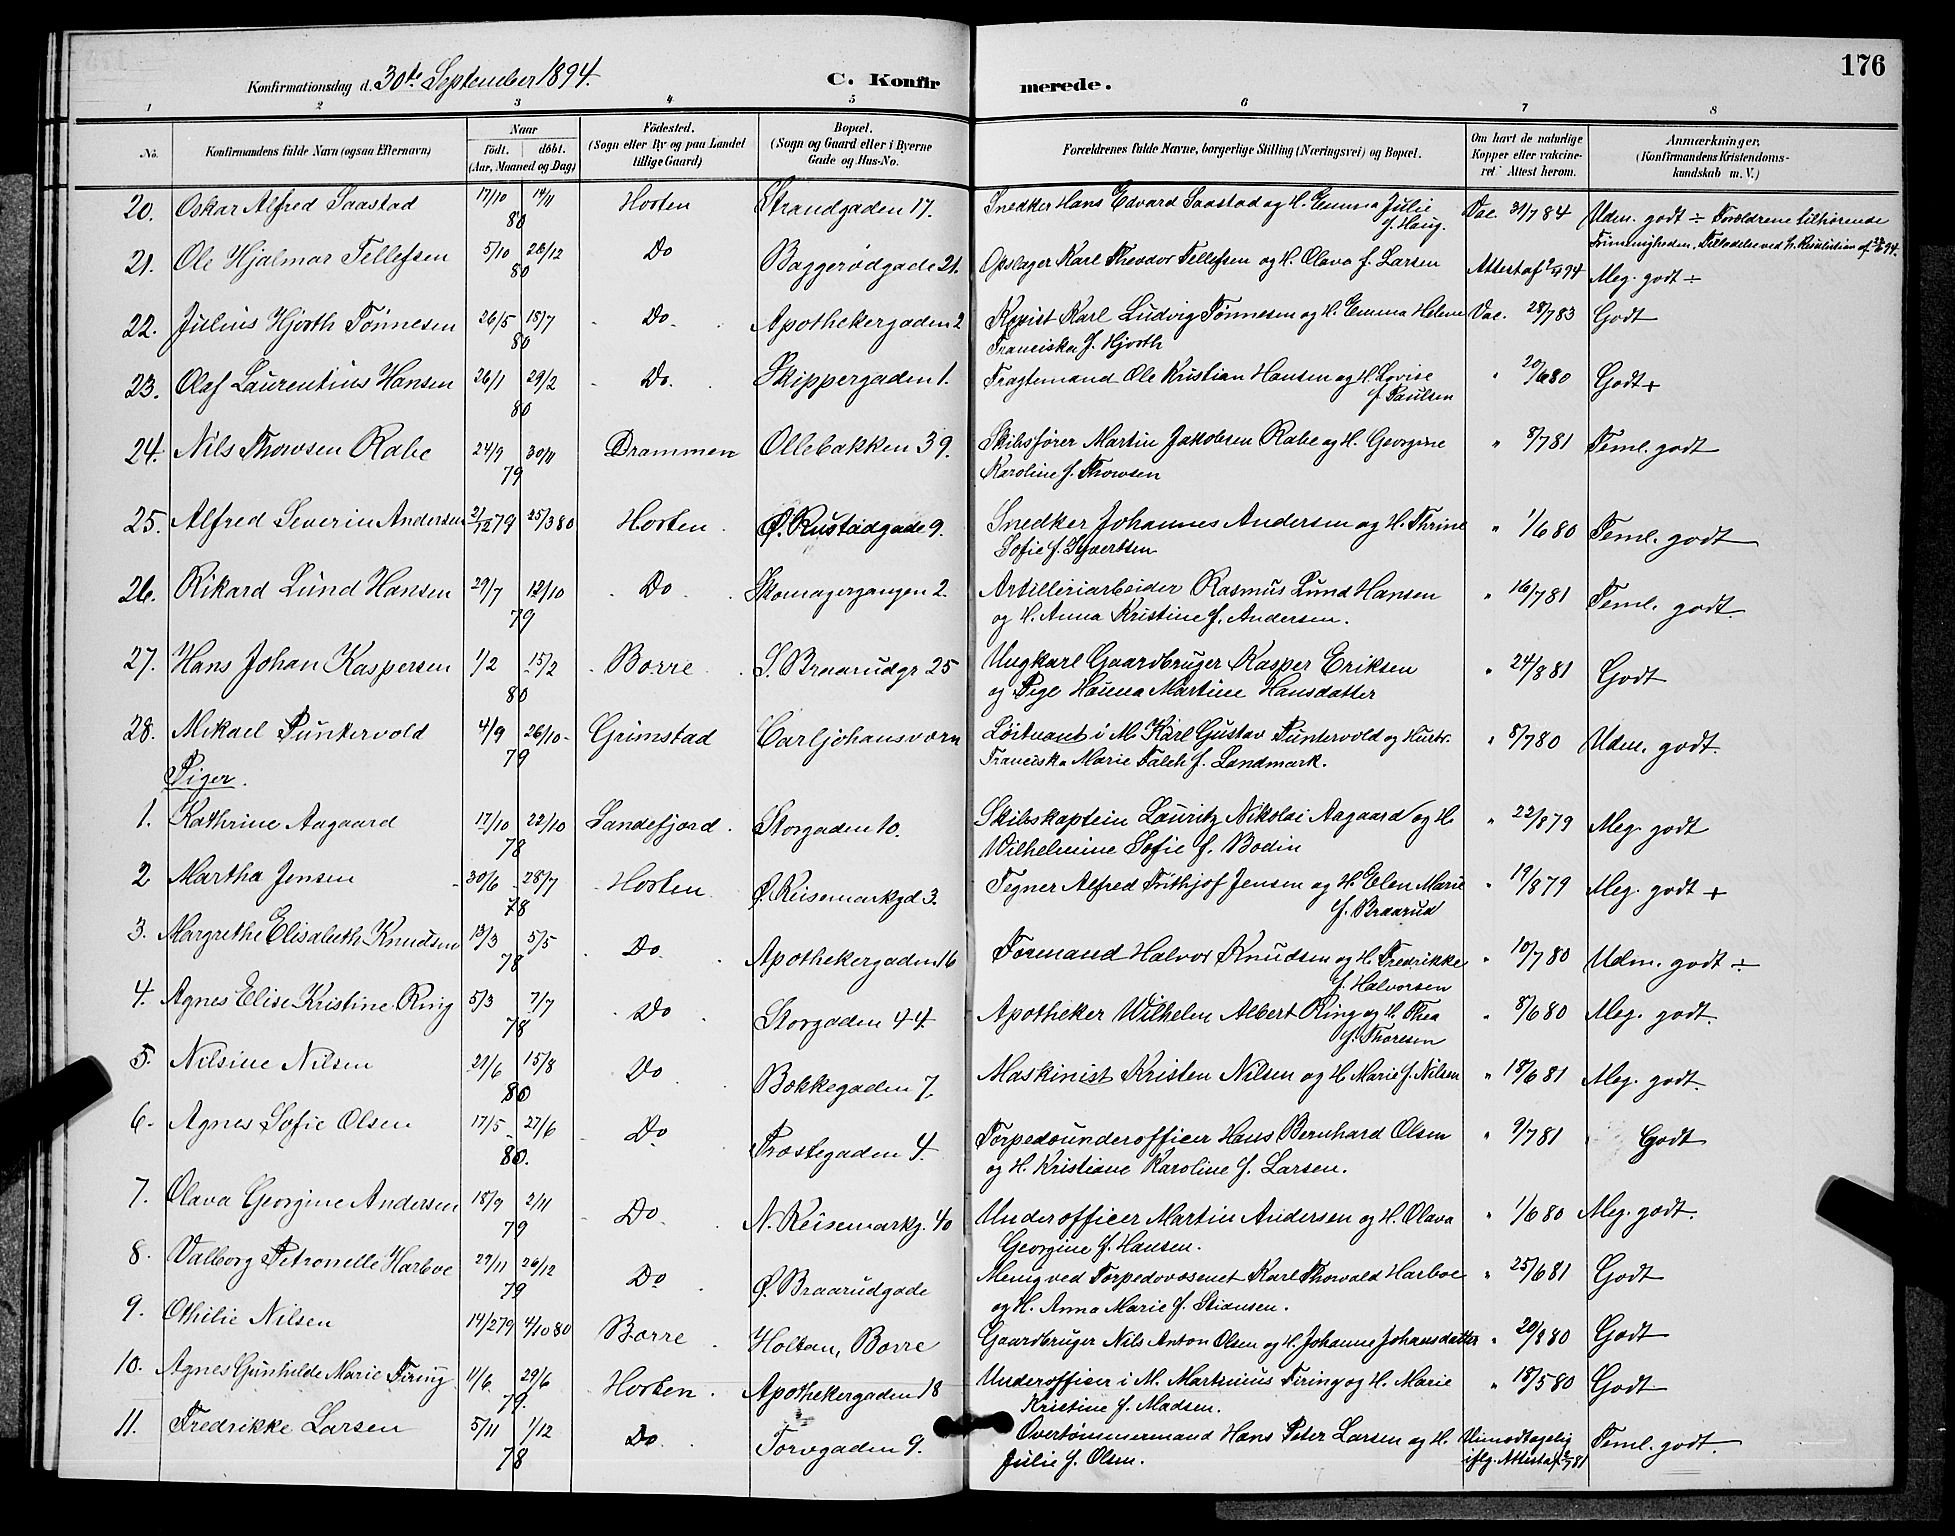 176
Konfirmationsdag d. 30te September 1894.
C. Konfirmerede.
1 2 3 4 5 6 7 8
No. Konfirmandens fulde Navn (ogsaa Efternavn) Naar født. døbt. (Aar, Maaned og Dag) Fødested. (Sogn eller By og paa Landet tillige Gaard) Bopæl. (Sogn og Gaard eller i Byerne Gade og Hus-No. Forældrenes fulde Navne, borgerlige Stilling (Næringsvei) og Bopæl. Om havt de naturlige Kopper eller vakcineret. Attest herom. Anmærkninger. (Konfirmandens Kristendomskundskab m. V.)
20. Oskar Alfred Saastad 17/10 14/11 80 Horten Strandgaden 17. Snedker Hans Edvard Saastad og H. Emma Julie f. Haug. Vac. 31/7 84 Udm. godt ÷ Forældrene tilhørende Frimenigheden. Tilladelse ved
21. Ole Hjalmar Tellefsen 5/10 26/12 80 Do Baggerødgade 21. Opslager Karl Theodor Tellefsen og H. Olava f. Larsen Attest af 94 Meg. godt ÷
22. Julius Hjorth Tønnesen 26/5 18/7 80 Do. Apothekergaden 2 Kopist Karl Ludvig Tønnesen og H. Emma Helene Franciska f. Hjorth Vac. 28/7 83 Godt
23. Olaf Laurentius Hansen 26/1 29/2 80 Do. Skippergaden 1. Fragtemand Ole Kristian Hansen og H. Lovise f. Paulsen " 20/6 80 Godt +
24. Nils Thowsen Rabe 24/9 30/11 79 Drammen Ollebakken 39. Skibsfører Martin Jakobsen Rabe og H. Georgine Karoline f. Thowsen " 8/7 81 Teml. godt
25. Alfred Severin Andersen 21/12 79 25/3 80 Horten Ø. Rustadgade 9. Snedker Johannes Andersen og H. Thrine Sofie f. Syvertsen " 1/6 80 Teml. godt
26. Rikard Lund Hansen 29/7 12/10 79 Do Skomagergangen 2. Artilleriarbeider Rasmus Lund Hansen og H. Anna Kristine f. Andersen. " 16/7 81 Teml. godt
27. Hans Johan Kaspersen 1/2 15/2 80 Borre S. Braarudgr 25 Ungkarl Gaardbruger Kasper Eriksen og Pige Hanna Martine Hansdatter " 24/8 81 Godt
28. Mikael Puntervold 4/9 26/10 79 Grimstad Carljohansværn Løitnant i M. Karl Gustav Puntervold og Hustr. Franciska Marie Falch f. Landmark. " 8/7 80 Udm. godt.
Piger.
1. Kathrine Aagaard 17/10 22/10 78 Sandefjord. Storgaden 10. Skibskaptein Lauritz Nikolai Aagaard og H. Wilhelmine Sofie f. Bodin " 22/8 79 Meg. godt
2 Martha Jensen 30/6 28/7 78 Horten Ø. Reisemarkgd 3. Tegner Alfred Frithjof Jensen og H. Elen Marie f. Braarud " 19/8 79 Meg. godt +
3. Margrethe Elisabeth Knudsen 13/3 5/5 78 Do Apothekergaden 16 Formand Halvor Knudsen og H. Fredrikke f. Halvorsen " 10/7 80 Udm. godt ÷
4. Agnes Elise Kristine Ring 5/3 7/7 78 Do Storgaden 44. Apotheker Wilhelm Albert Ring og H. Thea f. Thoresen " 8/6 80 Meg. godt.
5. Nilsine Nilsen 21/6 15/8 80 Do Bækkegaden 7. Maskinist Kristen Nilsen og H. Marie f. Nilsen " 18/6 81 Meg. godt.
6. Agnes Sofie Olsen 17/5 27/6 80. Do Trostegaden 4. Torpedounderofficer Hans Bernhard Olsen og H. Kristiane Karoline f. Larsen. " 9/7 81 Godt
7. Olava Georgine Andersen 18/9 2/11 79 Do N. Reisemarkg. 40 Underofficer Martin Andersen og H. Olava Georgine f. Hansen. " 1/6 80 Meg. godt.
8. Valborg Petronelle Harboe 27/11 26/12 79 Do Ø. Braarudgade Menig ved Torpedovæsenet Karl Thorvald Harboe og H. Anna Marie f. Stiansen. " 25/6 81 Godt
9. Othilie Nilsen 14/2 79 4/10 80 Borre Holtan, Borre Gaardbruger Nils Anton Olsen og H. Johanne Johansdatter " 20/8 80 Godt
10. Agnes Gunhilde Marie Firing 11/6 29/6 79. Horten Apothekergaden 18 Underofficer i M. Martinius Firing og H. Marie Kristine f. Madsen. " 18/5 80 Godt
11. Fredrikke Larsen 5/11 1/12 78 Do Torvgaden 9. Overtømmermand Hans Peter Larsen og H. Julie f. Olsen. Uimodtagelig iflg. Attest af 81 Teml. godt.